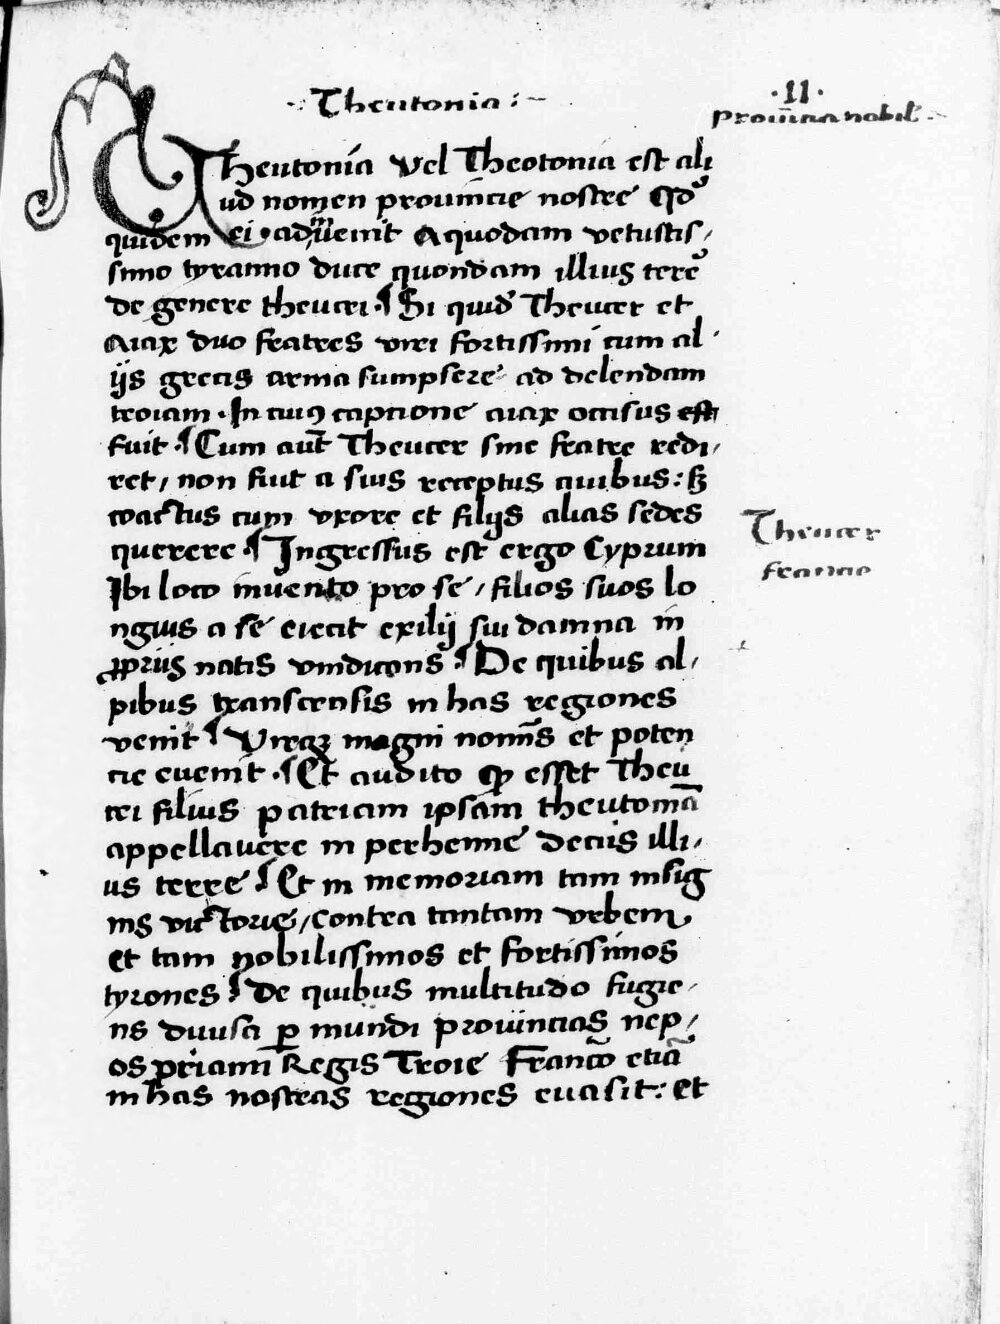 Theutonia
·11·
prouīcia nobil
Theutonia vel Theotonia est ali
ud nomen prouincie nostre Qd'
quidem ei aduenit a quodam vetustis,
simo tyranno duce quondam illius terre
de genere theucri ¶ Si quid' Theucer et
Aiax duo fratres viri fortissimi cum al
ijs grecis arma sumpsere ad delendam
troiam · In cui9 captione aiax occisus est
fuit ¶ Cum aut̄ Theucer sine fratre redi,
ret, non fuit a suis receptus ciuibus: sꝫ
coactus cum vxore et filijs alias sedes
querere ¶ Ingressus est ergo Cyprum
Ibi loco inuento pro se, filios suos lo
ngius a se eiecit exilij sui damna in
ꝓprijs natis vindicans ¶ De quibus al,
pibus transcensis in has regiones
venit ¶ Virqꝫ magni nomīs et poten
cie euenit ¶ Et audito ꝙ esset Theu
cri filius patriam ipsam theutoniā
appellauere in perhenne decus illi,
us terre ¶ Et in memoriam tam insig
nis victorie, contra tantam vrbem
et tam nobilissimos et fortissimos
tyrones ¶ De quibus multitudo fugie,
ns diuisa ꝑ mundi prouincias nep,
os priami Regis Troie Franco etiā
in has nostras regiones euasit: et
Theucer
francio